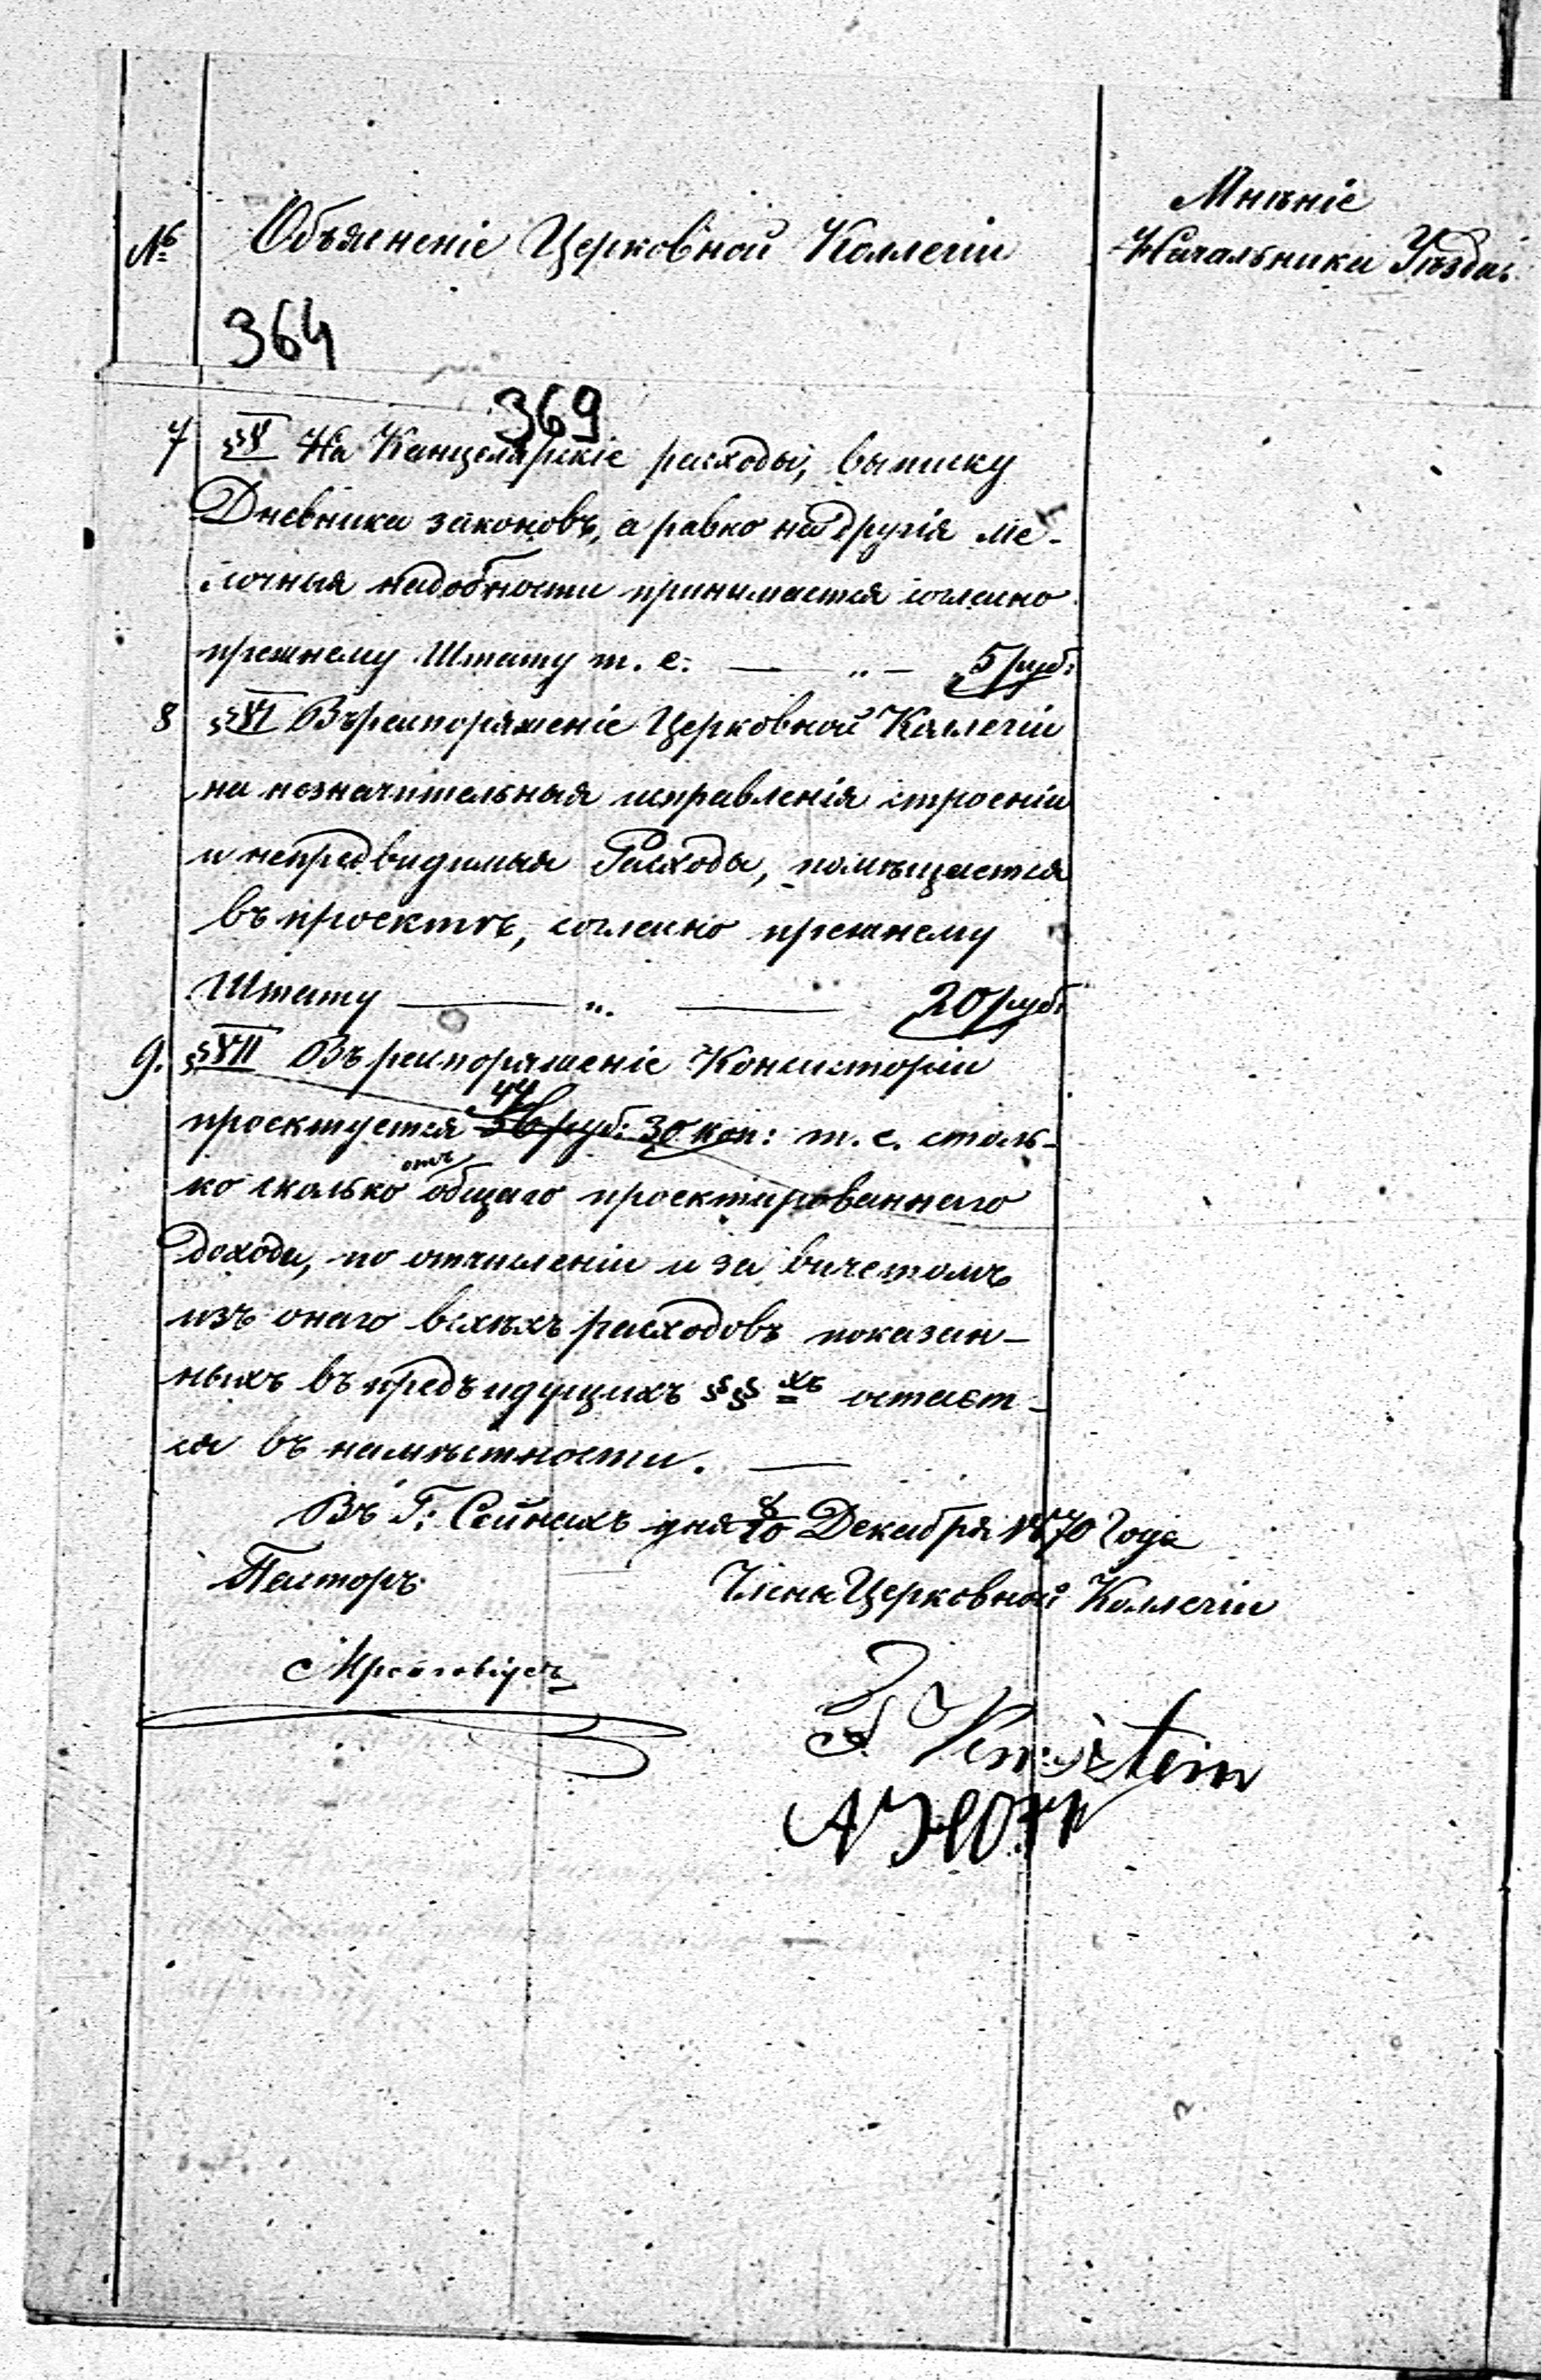 № Объясненіе Церковной Коллегіи
Мнѣніе
Начальника Уѣзда
364
369
7 §V На Канцелярскіе расходы, выписку
Дневника законовъ, а равно на другія ме-
лочныя надобности принимается согласно
прежнему Штату т. е. — „ — 5 руб.
8 §VI Въ распоряженіе Церковной Коллегіи
на незначительныя исправленія строеніи
и непредвидимыя Расходы, помѣщается
въ проектъ, согласно прежнему
Штату — „ — 20 руб.
9. §VII Въ распоряженіе Консисторіи
44
проектуется 36 руб: 30 коп: т. е. столь-
отъ
ко сколько общаго проектированнаго
дохода, по отчисленіи и за вычетомъ
изъ онаго всѣхъ расходовъ показан-
ныхъ въ предъидущихъ §§ хъ остает-
ся въ наличности. —
Въ Г: Сейнахъ дня 8/20 Декабря 1870 Года
Пасторъ Члены Церковной Коллегіи